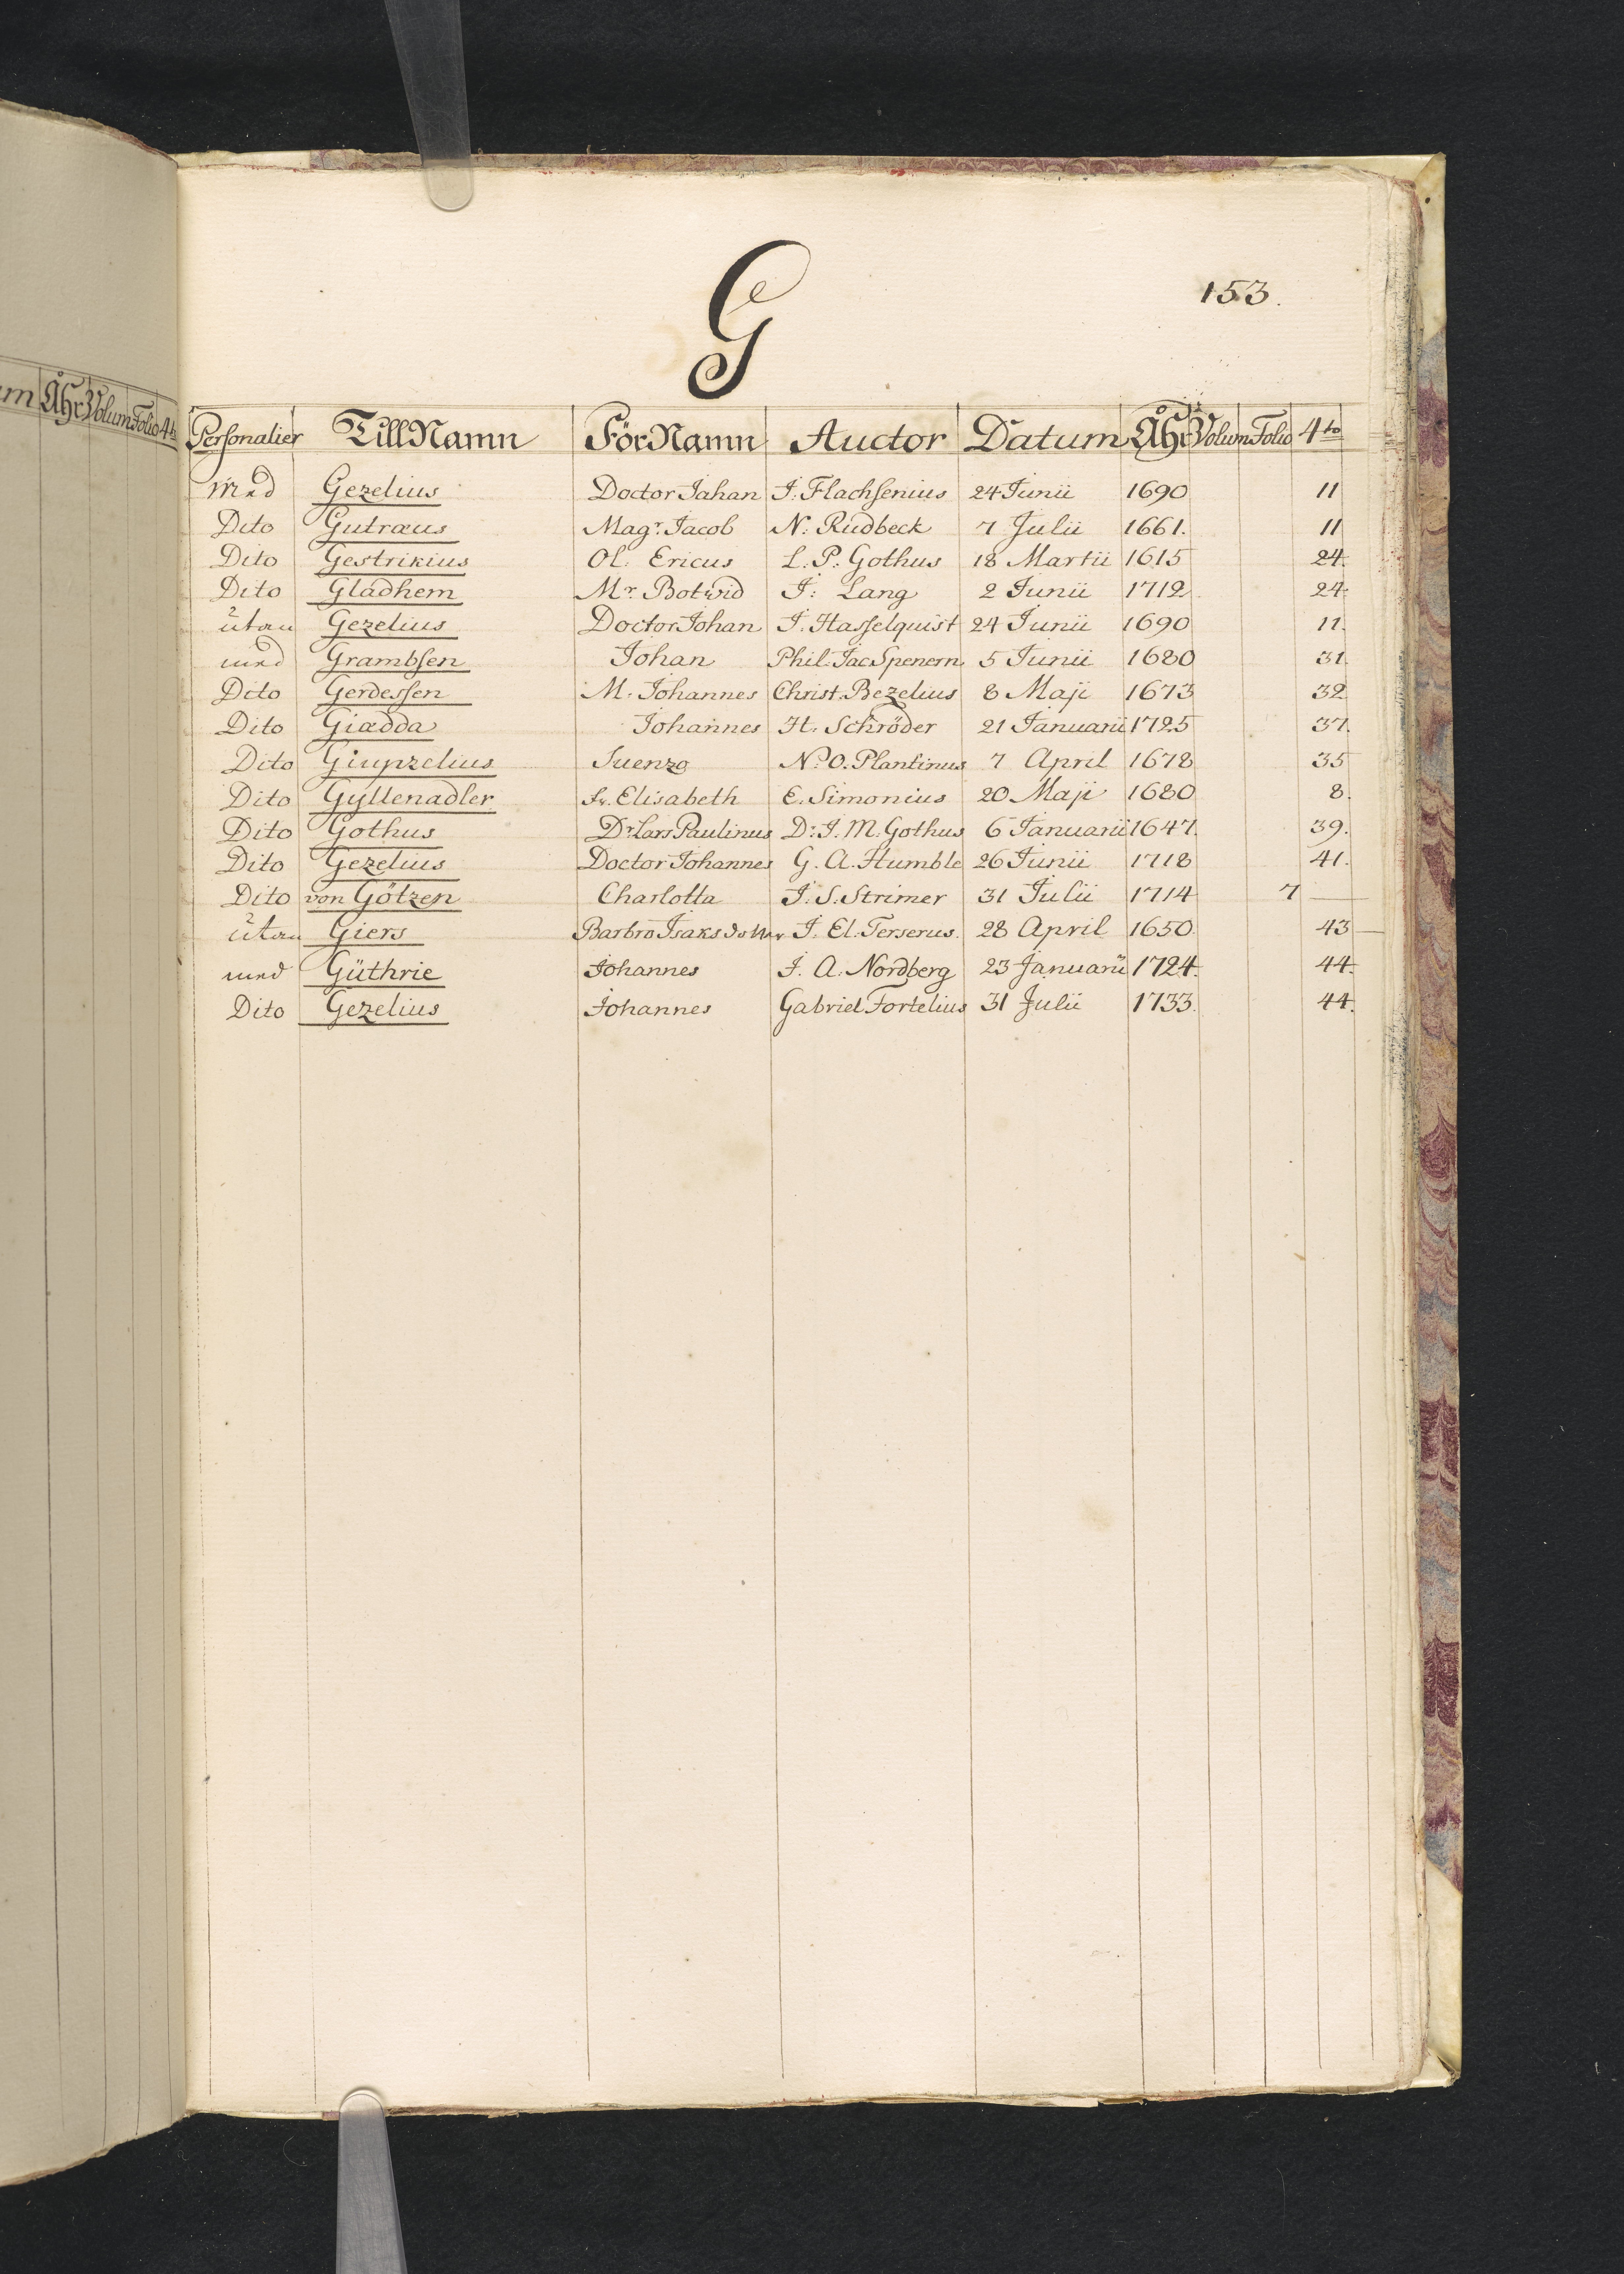 G
153.
um Åhr Volum Folio 4to
Personalier TillNamn FörNamn Auctor Datum Åhr Volum Folio 4to
Med Gezelius Doctor Jahan J: Flachsenius 24 Junii 1690 11
Dito Gutraus Magr. Jacob N: Rudbeck 7 Julii 1661. 11
Dito Gestrikius Ol. Ericus L. P: Gothus 18 Martii 1615 24.
Dito Gladhem Mr. Botwid J: Lang 2 Junii 1712 24.
utan Gezelius Doctor Johan J. Hasselquist 24 Junii 1690 11.
med Grambsen Johan Phil. Jac Spenern 5 Junii 1680 31.
Dito Gerdessen M. Johannes Christ. Bezelius 8 Maji 1673 32
Dito Giædda Johannes H. Schröder 21 Januarii 1725 37.
Dito Suenzo N. O. Plantinus 7 April 1678 35
Dito Gyllenadler fr. Elisabeth E. Simonius 20 Maji 1680 8.
Dito Gothus Dr. Lars Paulinus Dr. J. M. Gothus 6 Januarii 1647. 39.
Dito Gezelius Doctor Johannes G. A. Humble 26 Junii 1718 41.
Dito von Götzen Charlotta J. S. Strimer 31 Julii 1714 7 —
utan Giers Barbro Isaksdotter J. El. Terserus. 28 April 1650 43
med Güthrie Johannes J. A. Nordberg 23 Januarii 1724. 44.
Dito Gezelius Johannes Gabriel Fortelius 31 Julii 1733. 44.